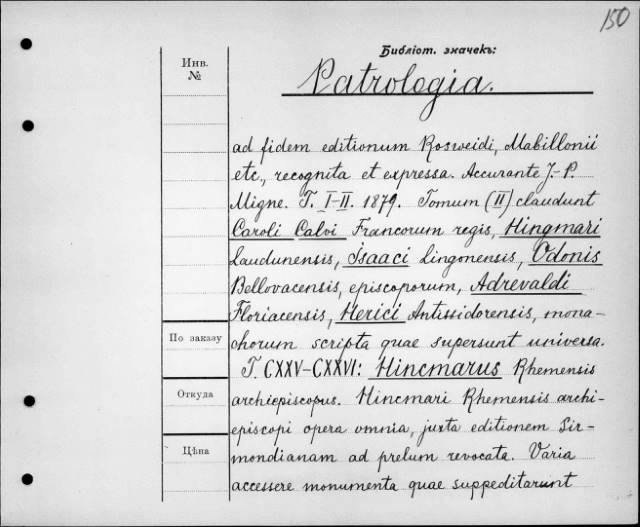 150
Библіот. значекъ:
Инв.
№
Patrologia.
ad fidem editionum Rosweidi, Mabillonii
etc., recognita et expressa. Accurante J.-P.
Migne. T. I-II. 1879. Tomum (II) claudunt
Caroli Calvi Francorum regis, Hingmari
Laudunensis, Isaaci Lingonensis, Odonis
Bellovacensis, episcoporum, Adrevaldi
Floriacensis, Herici Antissidorensis, mona-
chorum scripta quae supersunt universa.
T. CXXV-CXXVI: Hincmarus Rhemensis
archiepiscopus. Hincmari Rhemensis archi-
episcopi opera omnia, juxta editionem Sir-
mondianam ad prelum revocata. Varia
accessere monumenta quae suppeditarunt
По заказу
Откуда
Цѣна